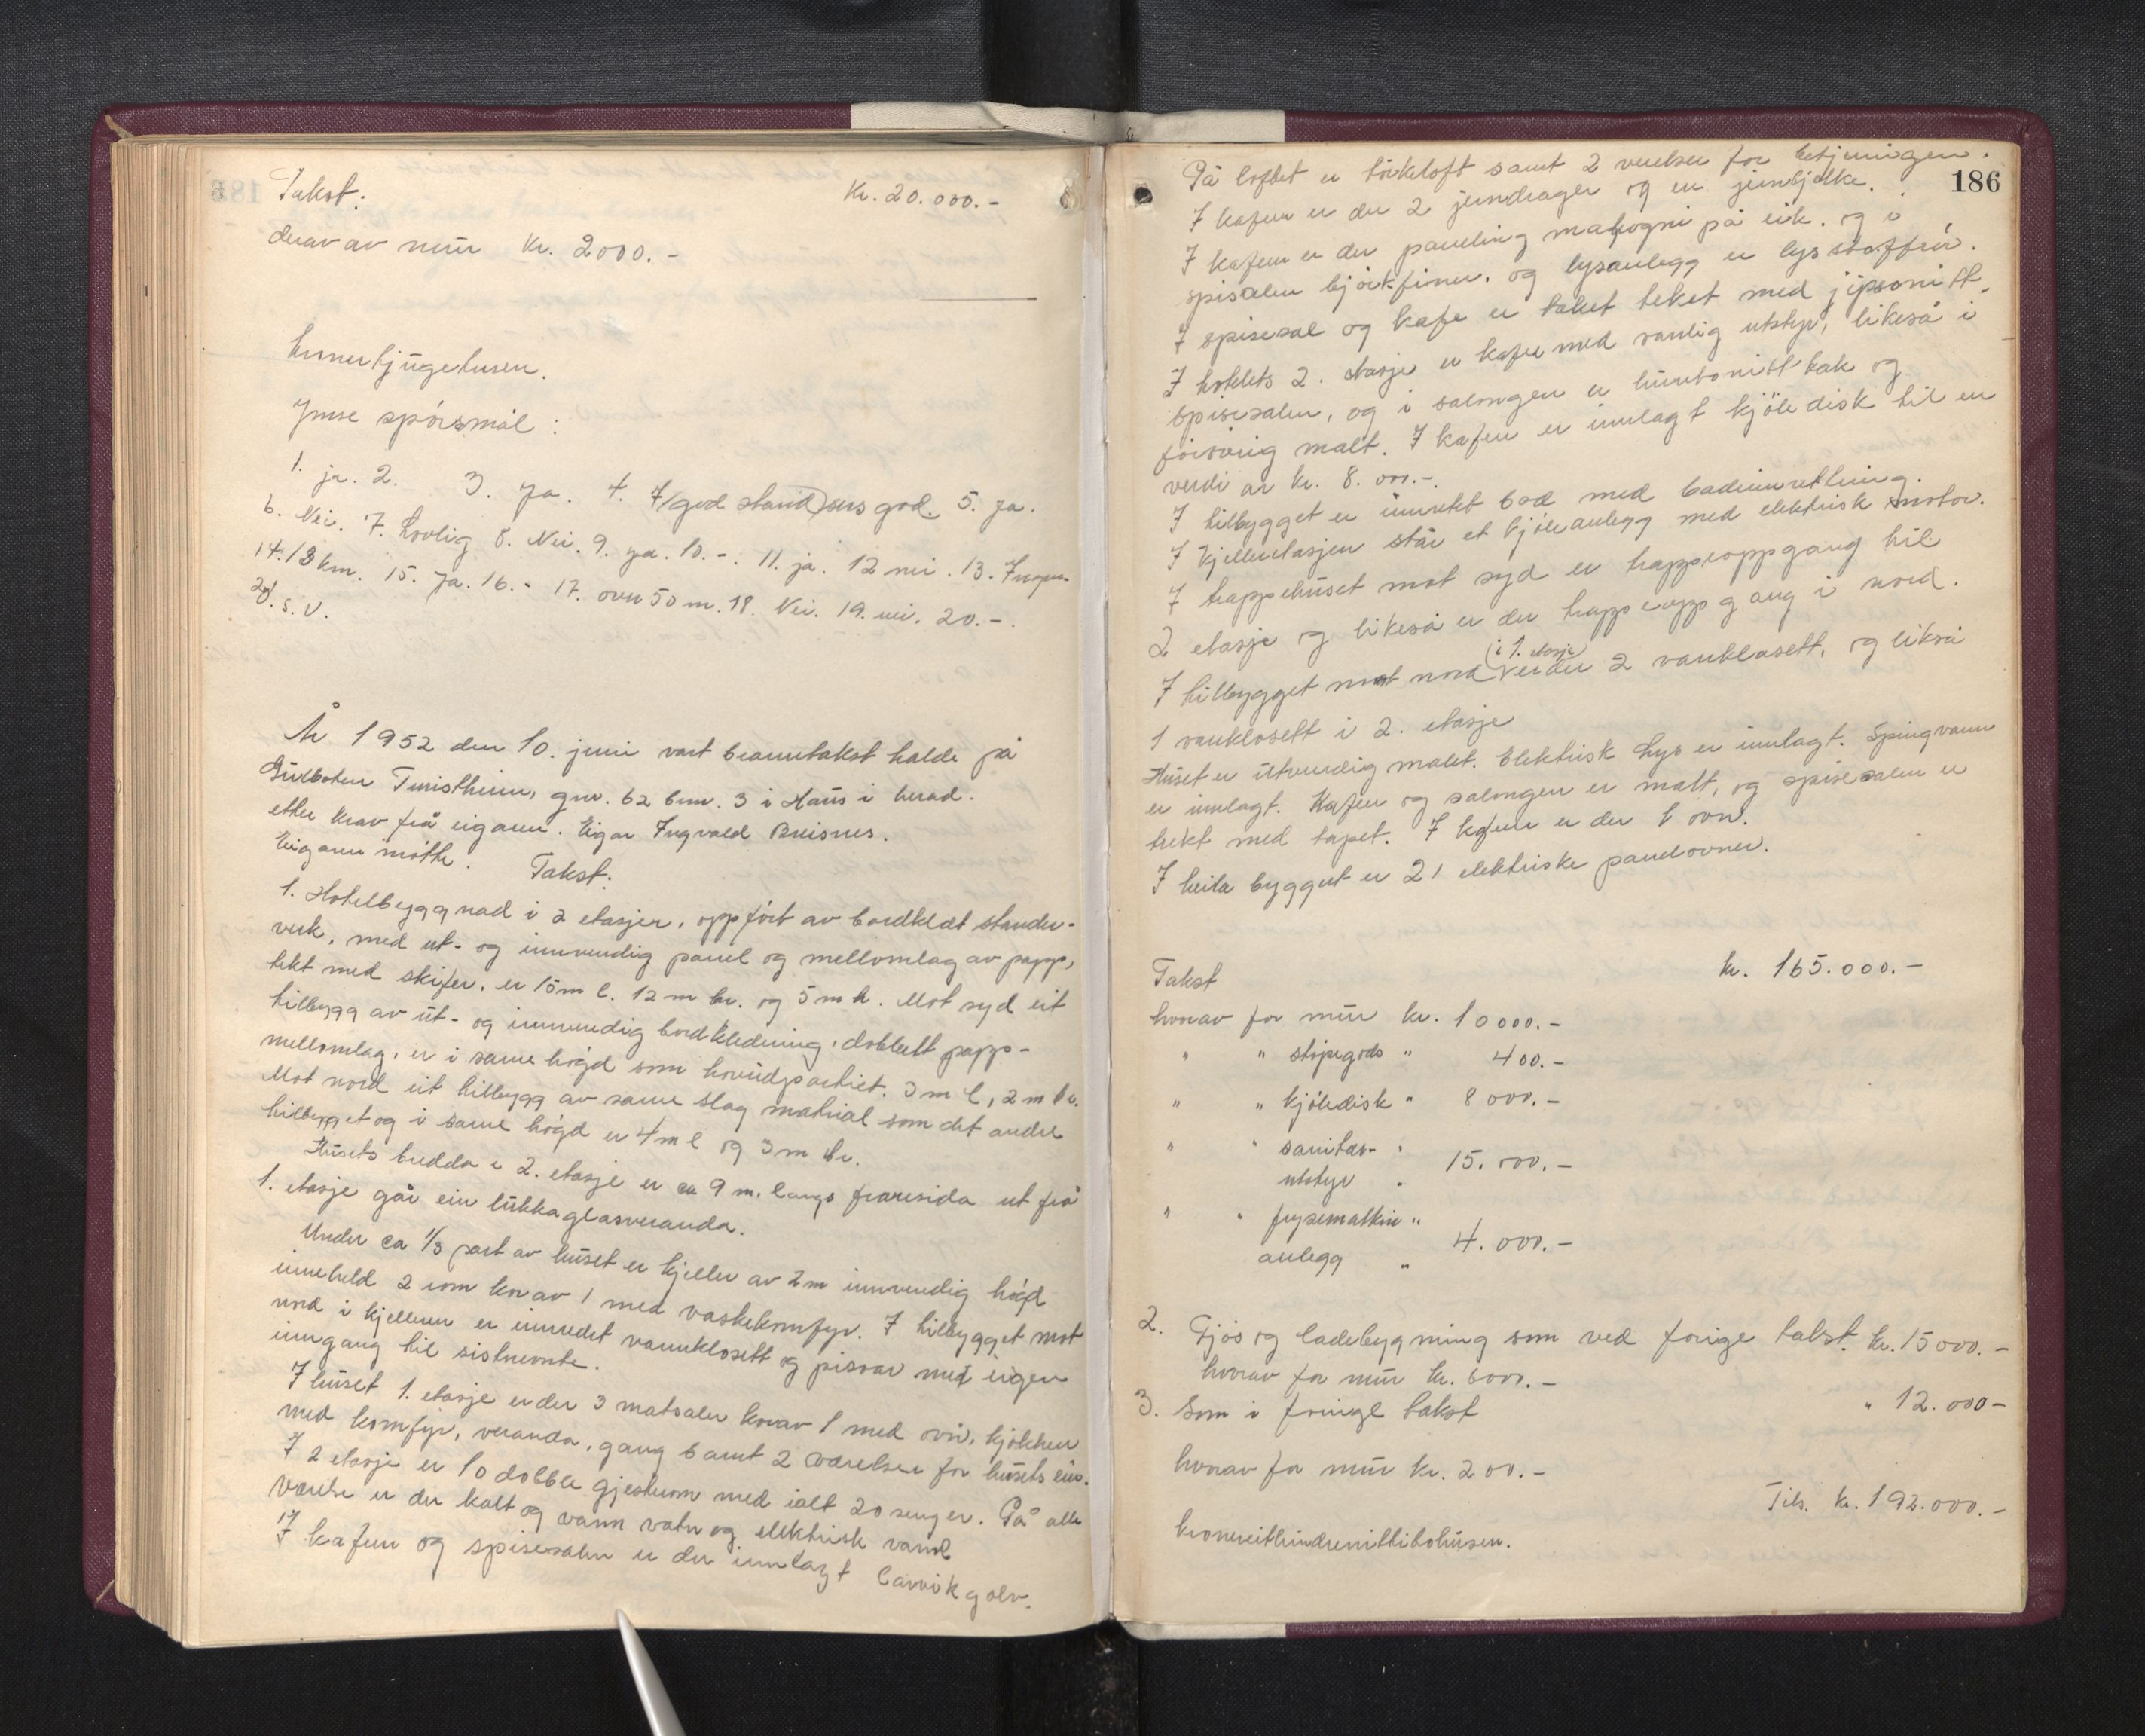 Takst: Kr. 20.000.-
derav av mur Kr. 2000.-
kroner tjugetusen.
Ymse spørsmål:
1. ja. 2. 3. Ja. 4. I god stand 5. Ja.
6. Nei. 7. Lovlig 8. Nei. 9. ja. 10. -. 11. ja. 12 nei. 13. Ingen
14. 13 km. 15. Ja. 16. - 17. over 50 m. 18. Nei. 19. nei. 20. -.
21. S.V.
År 1952 den 10. juni vart branntakst halde på
Gullbotn Turistheim, gnr. 62 bnr. 3 i Haus i herad.
etter krav frå eigaren. Eigar Ingvald Breisnes.
Eigaren møtte. Takst:
1. Hotelbyggnad i 2 etasjer, oppført av bordklædt stender-
verk, med ut- og innvendig panel og mellomlag av papp,
tekt med skifer. er 15 m l. 12 m br. og 5 m h. Mot syd eit
tilbygg av ut- og innvendig bordkledning, dobbelt papp-
mellomlag. er i same høgd som hovudpartiet. 3 m l, 2 m br.
Mot nord eit tilbygg av same slag matrial som det andre
tilbygget og i same høgd er 4 m l og 3 m br.
Husets bredda i 2. etasje er ca 9 m. langs framsida ut frå
1. etasje går ein lukka glasveranda.
Under ca 1/3 part av huset er kjeller av 2 m innvendig høgd
inneheld 2 rom korav 1 med vaskekomfyr. I tilbygget mot
nord i kjelleren er innredet vannklosett og pissoar med eigen
inngang til sistnevnte.
I huset 1. etasje er der 3 matsaler korav 1 med ovn, kjøkken
med komfyr, veranda, gang samt 2 værelser for husets eier.
I 2 etasje er 10 dobble gjesterom med ialt 20 senger. På alle
værelse er der kalt og varm vatn og elektrisk varme
I kafeen og spisesalen er der innlagt Carvikgolv.
186
På loftet er tørkeloft samt 2 værelser for betjeningen.
I kafeen er der 2 jerndrager og en jernbjelke.
I kafeen er der paneling mahogni på eik. og i
spisesalen bjørkfiner. og lysanlegg er lysstoffrør.
I spisesal og kafe er taket tekt med jipsonitt.
I hotelets 2. etasje er kafee med vanlig utstyr, likeså i
spisesalen, og i salongen er huntonittak og
forøvrig malt. I kafeen er innlagt kjøledisk til en
verdi av kr. 8.000.-.
I tilbygget er innredet bad med badeinnretning.
I kjelleretasjen står et kjøleanlegg med elektrisk motor.
I trappehuset mot syd er trappeoppgang til
2 etasje og likeså er der trappeoppgang i nord.
I tilbygget mot nord (i 1. etasje) er der 2 vannklosett, og likså
1 vannklosett i 2. etasje
Huset er utvendig malet. Elektrisk lys er innlagt. Springvann
er innlagt. Kafeen og salongen er malt, og spisesalen er
trekt med tapet. I kafeen er der 1 ovn.
I heila bygget er 21 elektriske panelovner.
Takst kr. 165.000.-
hvorav for mur kr. 10000.-
" " støpegods " 400.-
" " kjøledisk " 8000.-
" " sanitær- "
utstyr " 15.000.-
" " frysemaskin "
anlegg " 4.000.-
2. Fjøs og ladebygning som ved forige takst. kr. 15000.-
hvorav for mur kr. 6000.-
3. Som i forige takst " 12.000-
hvorav for mur kr. 200.-
Tils. kr. 192.000.-
kroneretthundrenittitotusen.